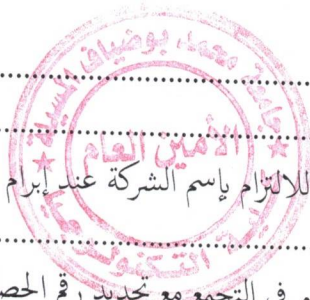 جامعة محمد بوضياف المسيلة
الأمين العام
للالتزام بإسم الشركة عند إبرام
في التجمع مع تحديد رقم الحص